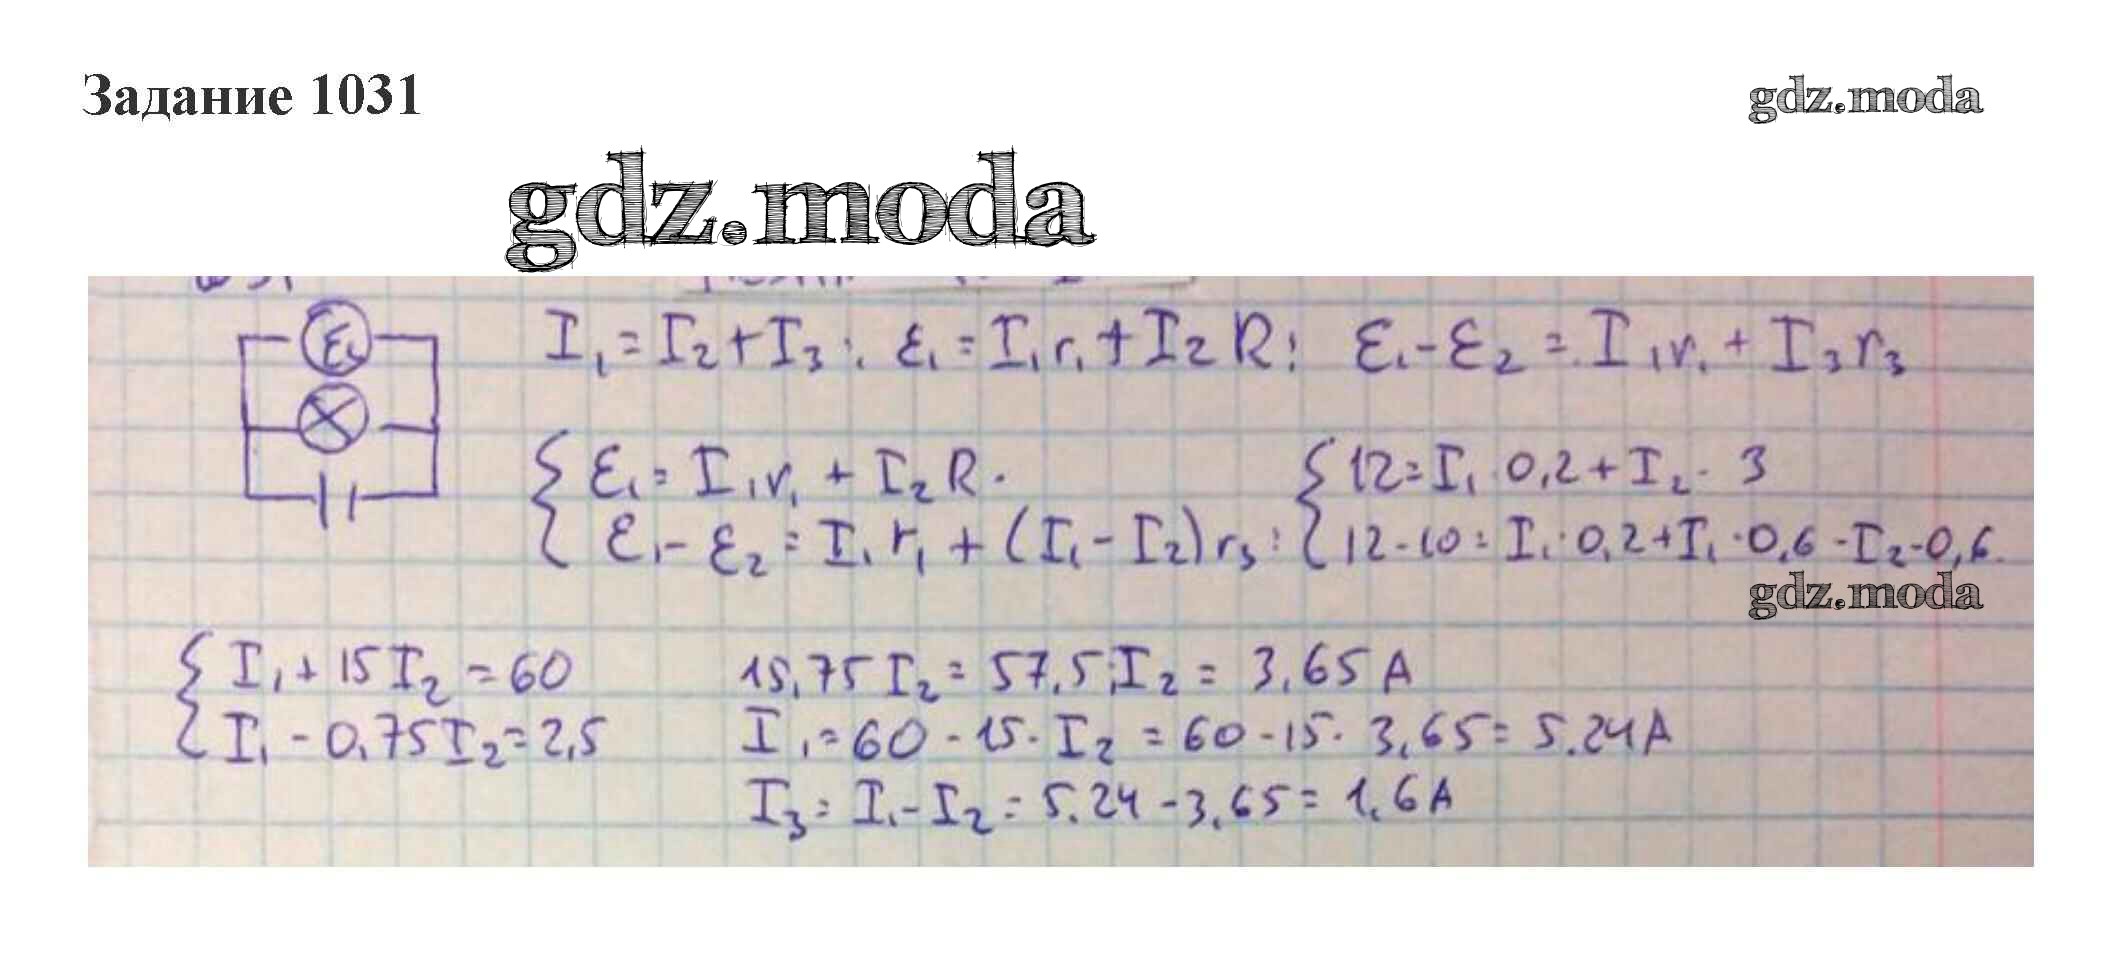 Задание 1031
gdz.moda
gdz.moda
ε₁
I₁ = I₂ + I₃ ; ε₁ = I₁r₁ + I₂R ; ε₁ - ε₂ = I₁r₁ + I₃r₃
{ ε₁ = I₁r₁ + I₂R .
{ ε₁ - ε₂ = I₁r₁ + (I₁ - I₂)r₃ :
{ 12 = I₁ · 0,2 + I₂ · 3
{ 12 - 10 = I₁ · 0,2 + I₁ · 0,6 - I₂ · 0,6.
gdz.moda
{ I₁ + 15I₂ = 60
{ I₁ - 0,75I₂ = 2,5
15,75I₂ = 57,5; I₂ = 3,65A
I₁ = 60 - 15 · I₂ = 60 - 15 · 3,65 = 5.24A
I₃ = I₁ - I₂ = 5.24 - 3,65 = 1,6A